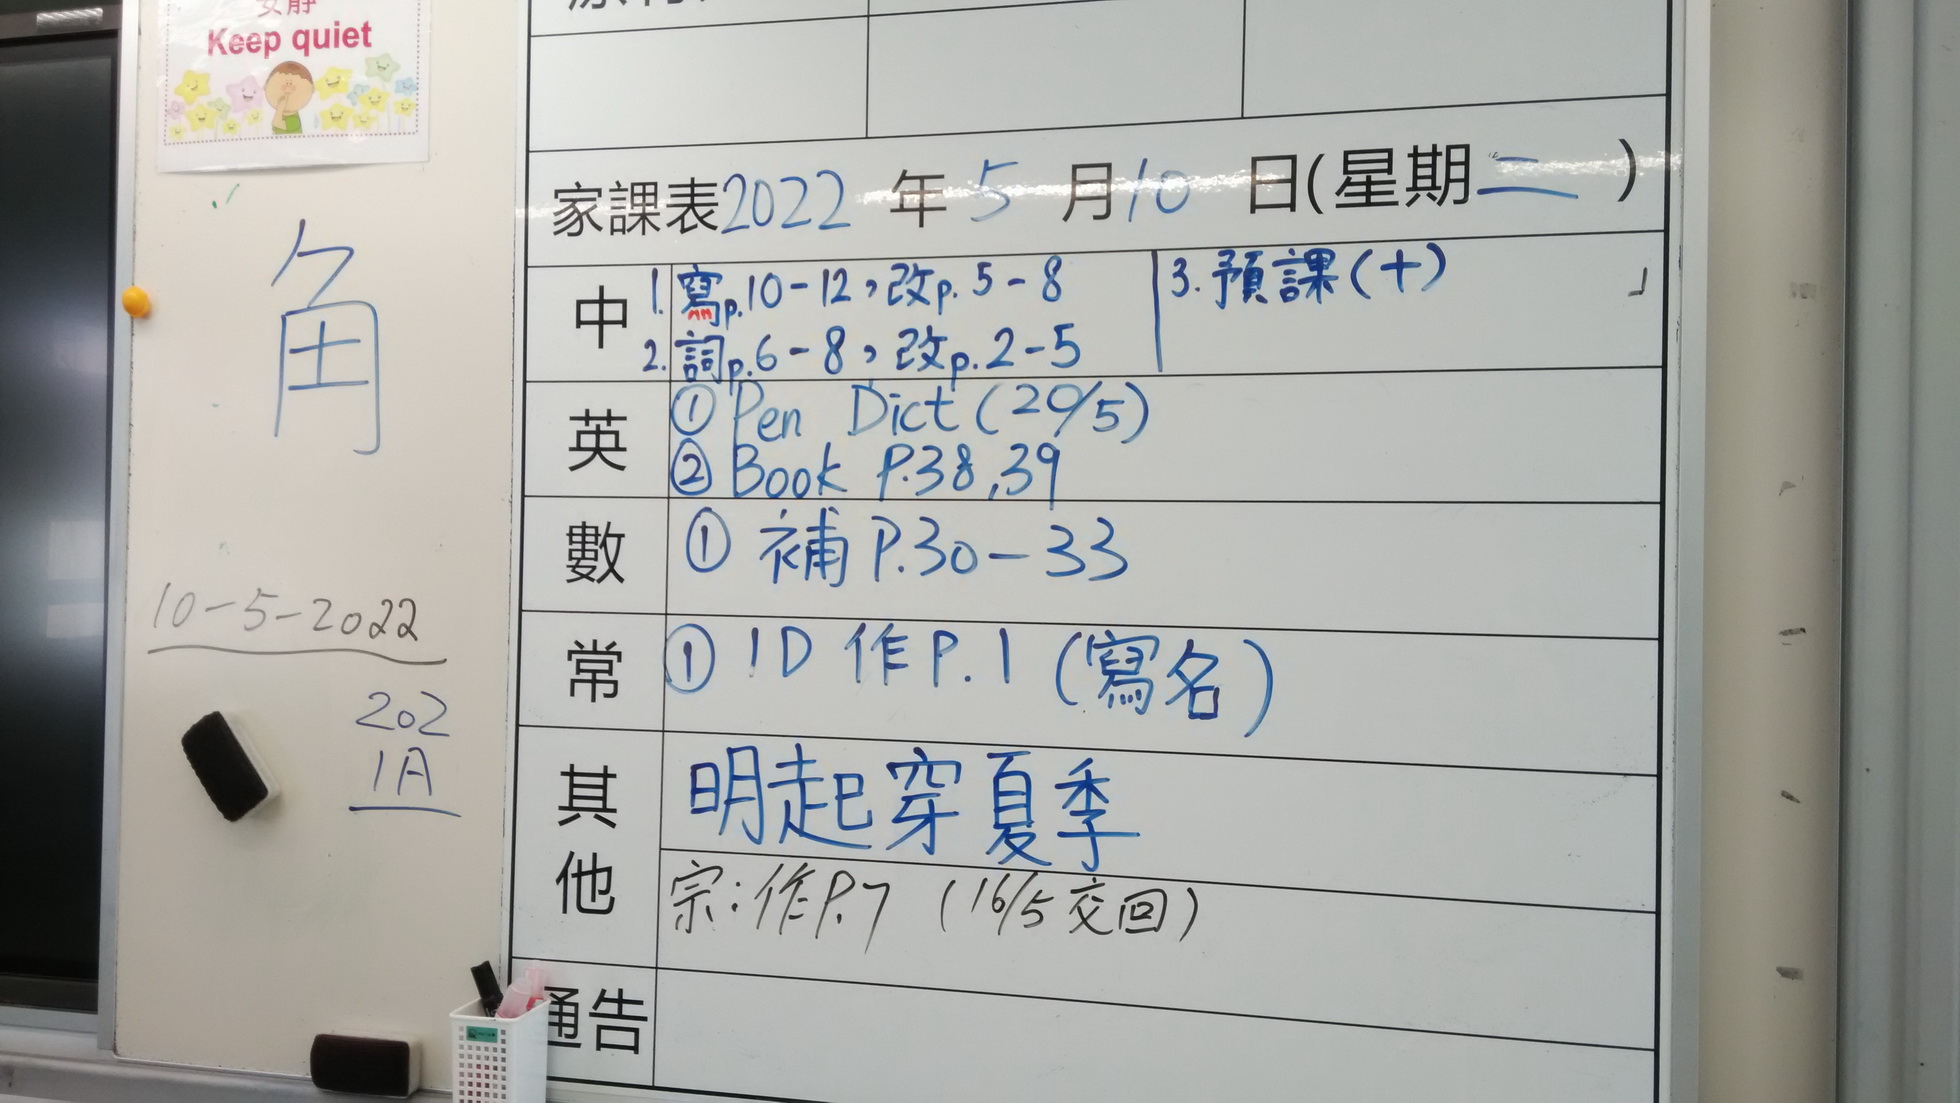 安靜
Keep quiet
角
10-5-2022
202
1A
家課表2022年5月10日(星期二)
中 1. 寫p.10-12，改p.5-8
2. 詞p.6-8，改p.2-5
3. 預課(十)
英 ① Pen Dict (20/5)
② Book P.38,39
數 ① 補P.30-33
常 ① 1D 作P.1 (寫名)
其他 明起穿夏季
宗:作P.7 (16/5交回)
通告